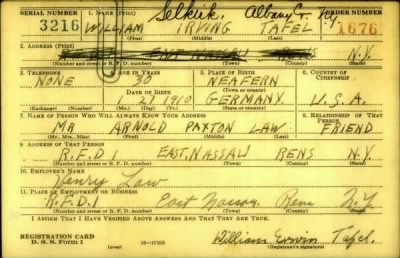 Selkirk, Albany Co. Ny
SERIAL NUMBER 1. NAME (Print) ORDER NUMBER
3216 WILLIAM IRVING TAFEL 1676
(First) (Middle) (Last)
2. ADDRESS (Print)
EAST NASSAU RENS N.Y.
(Number and street or R. F. D. number) (Town) (County) (State)
3. TELEPHONE 4. AGE IN YEARS 5. PLACE OF BIRTH 6. COUNTRY OF CITIZENSHIP
NONE 30 NEAFERN
DATE OF BIRTH (Town or county)
1 27 1910 GERMANY U.S.A.
(Mo.) (Day) (Yr.) (State or country)
7. NAME OF PERSON WHO WILL ALWAYS KNOW YOUR ADDRESS 8. RELATIONSHIP OF THAT PERSON
MR ARNOLD PAXTON LAW FRIEND
(Mr., Mrs., Miss) (First) (Middle) (Last)
9. ADDRESS OF THAT PERSON
R.F.D EAST NASSAU RENS N.Y.
(Number and street or R. F. D. number) (Town) (County) (State)
10. EMPLOYER'S NAME
Henry Law
11. PLACE OF EMPLOYMENT OR BUSINESS
R.F.D.1 East Nassau Rens N.Y.
(Number and street or R. F. D. number) (Town) (County) (State)
I AFFIRM THAT I HAVE VERIFIED ABOVE ANSWERS AND THAT THEY ARE TRUE.
REGISTRATION CARD
D. S. S. Form 1 William Erwin Tafel
(over) (Registrant's signature)